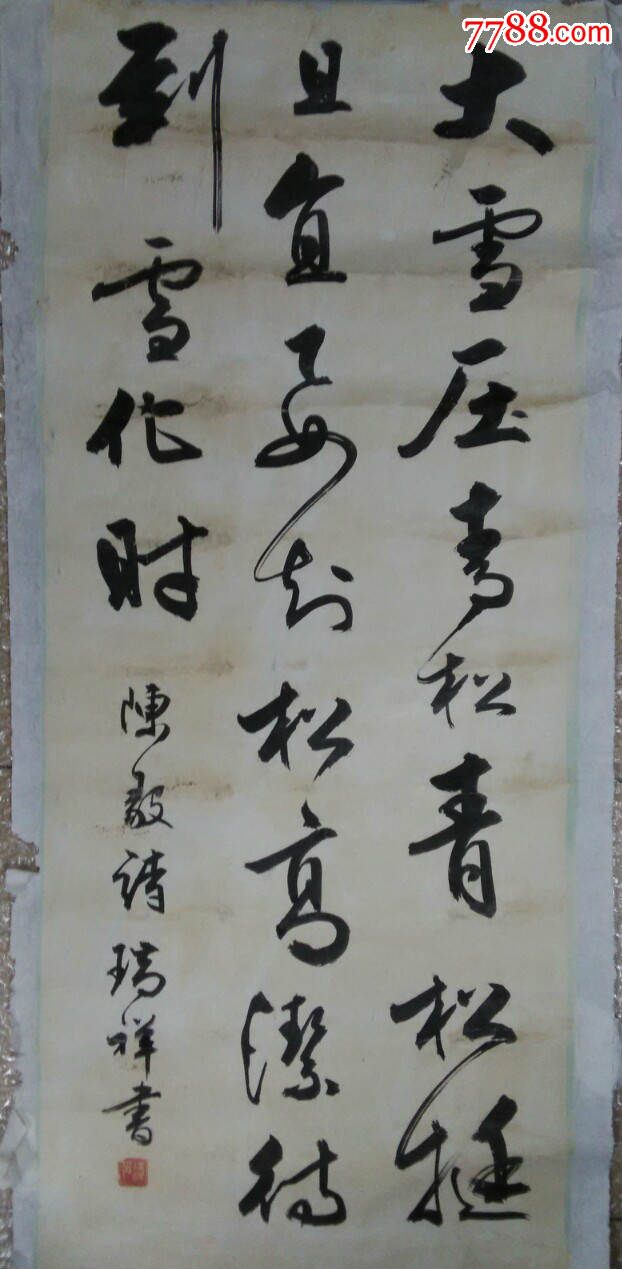 7788.com
大雪压青松青松挺
且直要知松高潔待
到雪化时 陳毅詩 瑞祥書